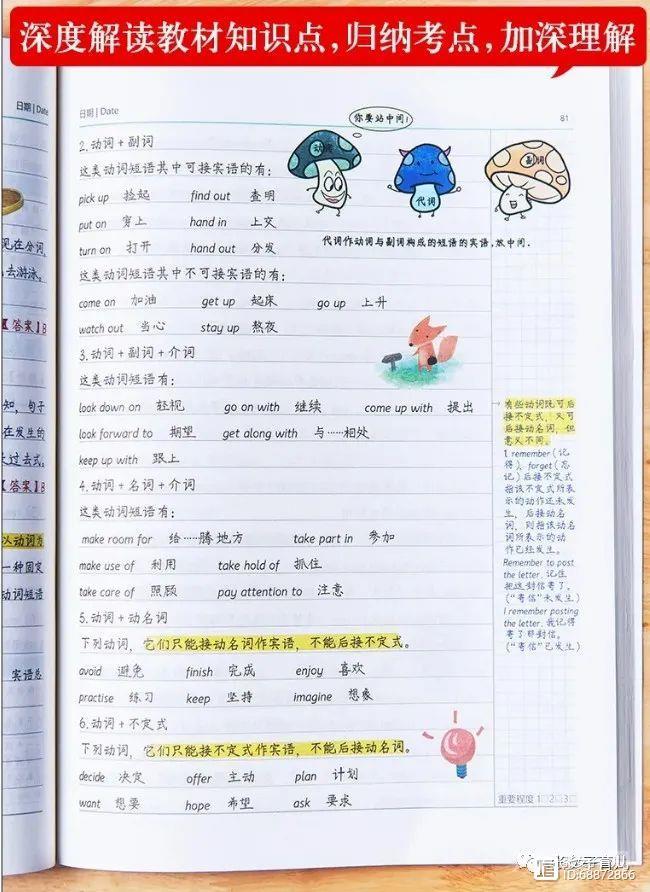 深度解读教材知识点，归纳考点，加深理解
日期 | Date
日期 | Date
81
你要站中间！
2. 动词 + 副词
动词
代词
副词
这类动词短语其中可接宾语的有：
pick up 捡起 find out 查明
put on 穿上 hand in 上交
turn on 打开 hand out 分发
代词作动词与副词构成的短语的宾语，放中间。
这类动词短语其中不可接宾语的有：
come on 加油 get up 起床 go up 上升
watch out 当心 stay up 熬夜
3. 动词 + 副词 + 介词
这类动词短语有：
look down on 轻视 go on with 继续 come up with 提出
look forward to 期望 get along with 与……相处
keep up with 跟上
4. 动词 + 名词 + 介词
这类动词短语有：
make room for 给……腾地方 take part in 参加
make use of 利用 take hold of 抓住
take care of 照顾 pay attention to 注意
5. 动词 + 动名词
下列动词，它们只能接动名词作宾语，不能后接不定式。
avoid 避免 finish 完成 enjoy 喜欢
practise 练习 keep 坚持 imagine 想象
6. 动词 + 不定式
下列动词，它们只能接不定式作宾语，不能后接动名词。
decide 决定 offer 主动 plan 计划
want 想要 hope 希望 ask 要求
有些动词既可后
接不定式，又可
后接动名词，但
意义不同。
1. remember（记
得），forget（忘
记）后接不定式
指该不定式所表
示的动作还未发
生，后接动名
词，则指该动名
词所表示的动
作已经发生。
Remember to post
the letter. 记住
把这封信寄了。
（“寄信”未发生）
I remember posting
the letter. 我记得
寄了那封信。
（“寄信”已发生）
重要程度 1□2□3□
现在分词
去游泳。
【答案】B
知，句子
在发生的
过去式。
【答案】B
以动词为
一种固定
动词短语
宾语总
ID:68872866